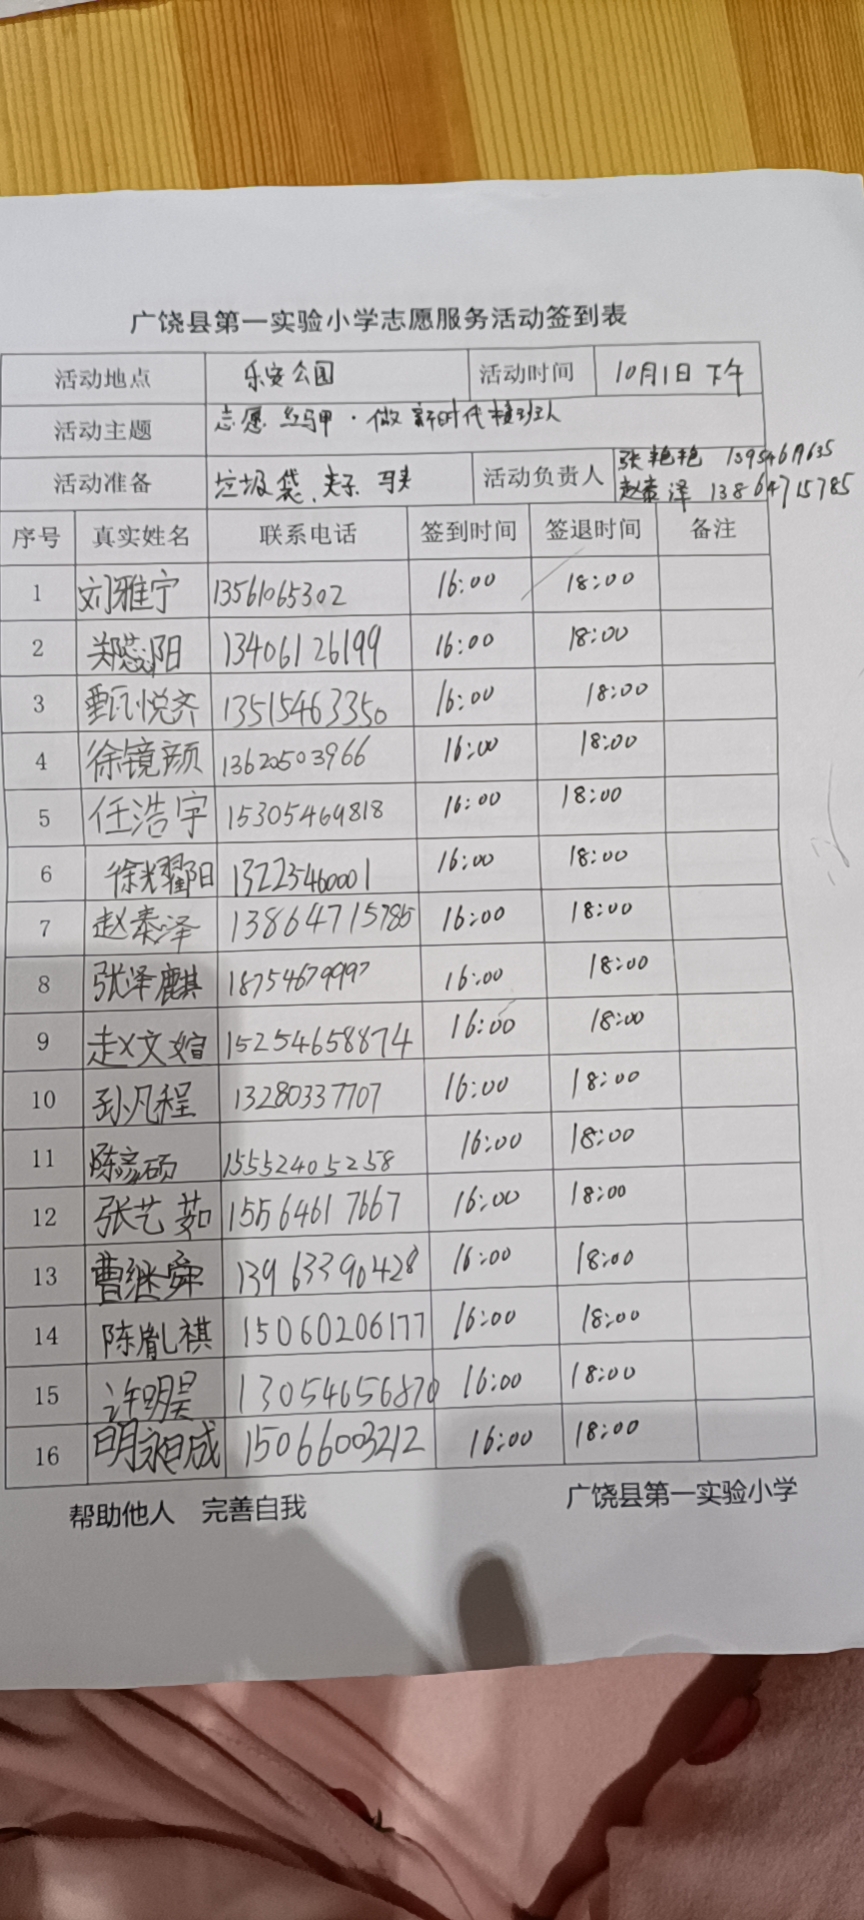 广饶县第一实验小学志愿服务活动签到表
活动地点 乐安公园 活动时间 10月1日 下午
活动主题 志愿红马甲·做新时代接班人
活动准备 垃圾袋、夹子、马夹 活动负责人 张艳艳
赵泰泽 13864715785
序号 真实姓名 联系电话 签到时间 签退时间 备注
1 刘雅宁 13561065302 16:00 18:00
2 郑蕊阳 13406126199 16:00 18:00
3 甄悦齐 13515463350 16:00 18:00
4 徐镜颜 13620503966 16:00 18:00
5 任浩宇 15305469818 16:00 18:00
6 徐耀阳 13225460001 16:00 18:00
7 赵泰泽 13864715785 16:00 18:00
8 张泽麒 18754679997 16:00 18:00
9 赵文煊 15254658874 16:00 18:00
10 孙凡程 13280337707 16:00 18:00
11 陈家硕 15552405258 16:00 18:00
12 张艺茹 15564617667 16:00 18:00
13 曹继舜 13963390428 16:00 18:00
14 陈胤祺 15060206177 16:00 18:00
15 许明昊 13054656870 16:00 18:00
16 15066003212 16:00 18:00
帮助他人 完善自我 广饶县第一实验小学